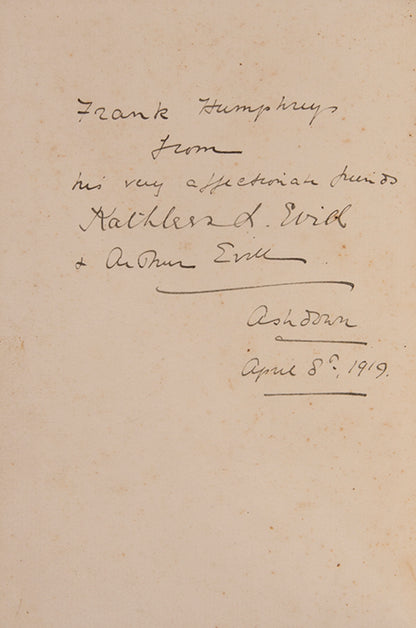 Frank Humphreys
from
his very affectionate friends
Kathleen L. Evill
& Arthur Evill
Ashdown
April 8th, 1919.